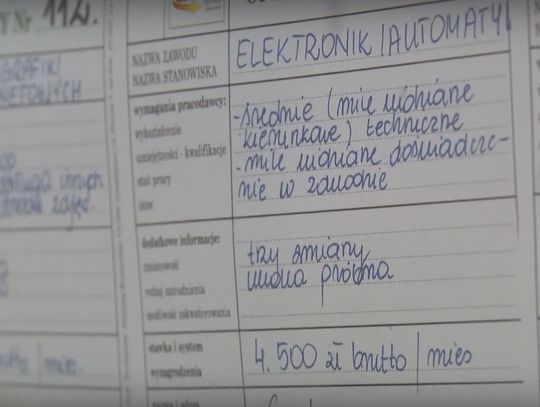 Y Nr 112.
GRAFIKI
NAZWA ZAWODU
NAZWA STANOWISKA
ELEKTRONIK /AUTOMATYK
wymagania pracodawcy:
wykształcenie
umiejętności - kwalifikacje
staż pracy
inne
-średnie (mile widziane
kierunkowe) techniczne
- mile widziane doświadcze-
nie w zawodzie
innych
zajęć.
dodatkowe informacje:
zmianowość
rodzaj zatrudnienia
możliwość zakwaterowania
trzy zmiany
umowa próbna
stawka i system
wynagrodzenia
4.500 zł brutto / mies
brutto / mies.
nazwa i adres